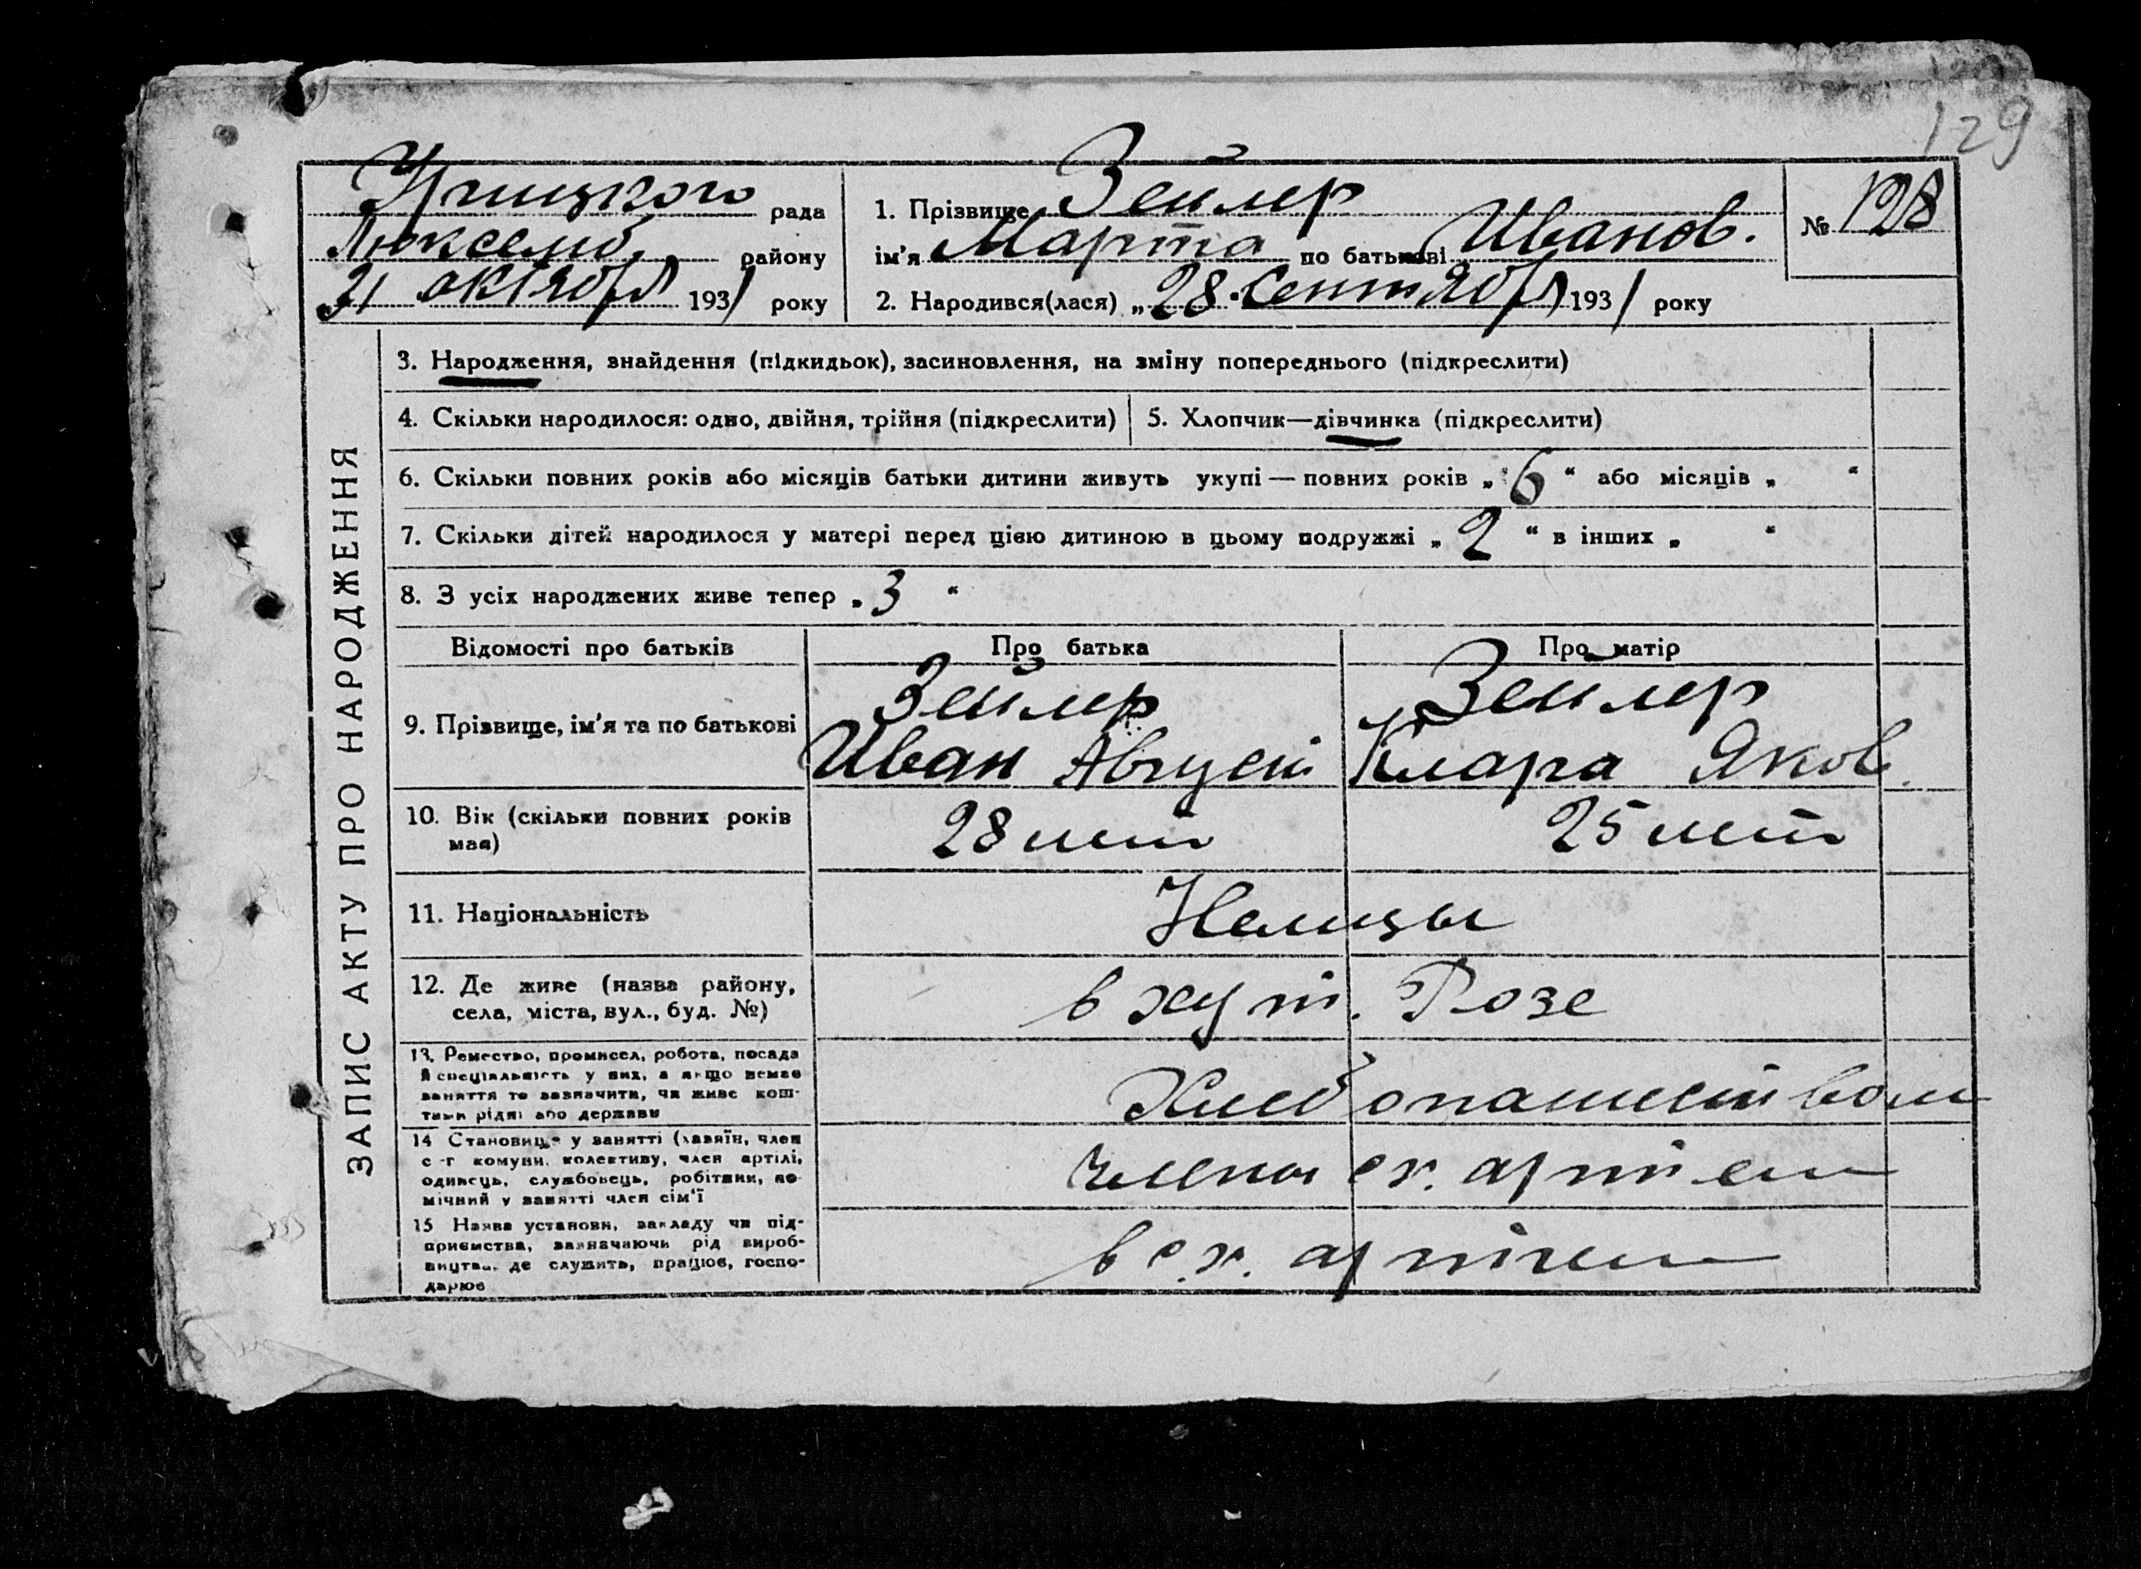 129
Урицкого рада
Люксемб. району
21 октября 1931 року
1. Прізвище Зейлер
ім'я Марта по батькові Иванов.
2. Народився(лася) „28“ Сентября 1931 року
№ 128
ЗАПИС АКТУ ПРО НАРОДЖЕННЯ
3. Народження, знайдення (підкидьок), засиновлення, на зміну попереднього (підкреслити)
4. Скільки народилося: одно, двійня, трійня (підкреслити)
5. Хлопчик—дівчинка (підкреслити)
6. Скільки повних років або місяців батьки дитини живуть укупі — повних років „6“ або місяців „ “
7. Скільки дітей народилося у матері перед цією дитиною в цьому подружжі „2“ в інших „ “
8. З усіх народжених живе тепер „3“
Відомості про батьків Про батька Про матір
9. Прізвище, ім'я та по батькові
Зейлер
Иван Август
Зейлер
Клара Яков.
10. Вік (скільки повних років
має)
28 лет 25 лет
11. Національність
Немцы
12. Де живе (назва району,
села, міста, вул., буд. №)
в хут. Розе
13. Ремество, промисел, робота, посада
й спеціяльність у них, а якщо немає
заняття то зазначити, чи живе кош-
тами рідні або держави
Хлебопашеством
14 Становище у занятті (хазяїн, член
с-г комуни, колективу, член артілі,
одинець, службовець, робітник, по-
мічний у занятті член сім'ї
члены с.х. артели
15 Назва установи, закладу чи під-
приємства, зазначаючи рід вироб-
ництва, де служить, працює, госпо-
дарює
в с.х. артели